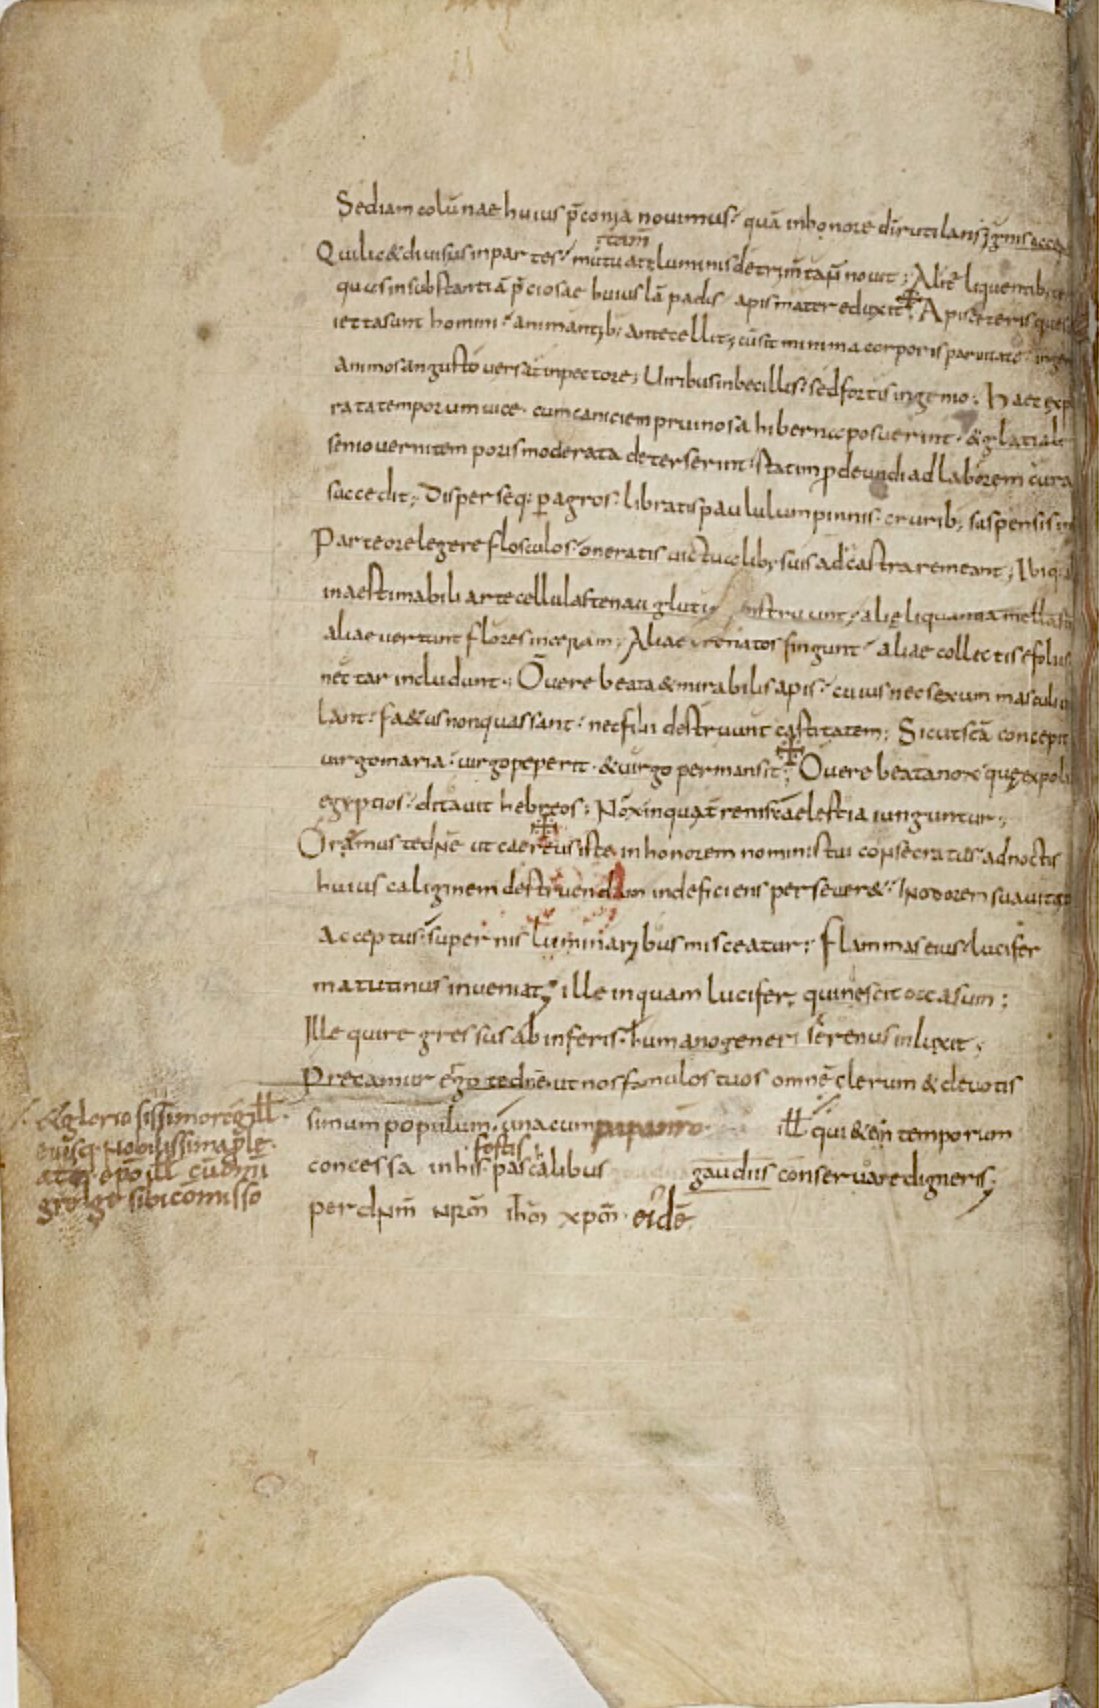 Sediam colūnae huius p̄conia novimus. quā inhonore dī rutilans ignis accen
Qui lic& divisus inpartes. mutuati luminis detrim̄ta n̄ novit; Alit̄ liquentib;
tam̄
quas insubstantiā p̄ciosae huius lā padis apis mater eduxit. Apis ceteris que sub
iecta sunt homini. animantib; antecellit; cū sit minima corporis parvitate. ingen
animos angusto versat inpectore; Viribus inbecillis. sed fortis ingenio; Haec exp
rata temporum vice. cum caniciem pruinosa hiberna posuerint. & glaciale
senio verni tem poris moderata deterserint. statim pdeundi ad laborem cura
succedit; Disperseq; p agros. libratis paululum pinnis. crurib; suspensis in
Parte ore legere flosculos. oneratis victualib; suis ad castra remeant; Ibiq; a
inaestimabili arte cellulas tenaci glutin instruunt; alię liquantia mella sti
aliae vertunt flores inceram; Aliae natos fingunt. aliae collectis e foliis
nectar includunt; O vere beata & mirabilis apis. cuius nec sexum masculi vi
lant. fa&us non quassant. nec filii destruunt castitatem; Sicut sc̄a concepit
virgo maria. virgo peperit. & virgo permansit; O vere beata nox. quę expoli
egyptios. ditavit hebreos; Nox inqua terrenis caelestia iunguntur;
Oramus te dn̄e ut caereus iste inhonorem nominis tui consecratus. ad noctis
huius caliginem destruendam indeficiens persever&. In odorem suavitat
acceptus. supernis luminaribus misceatur; Flammas eius. lucifer
matutinus inveniat; ille inquam lucifer. qui nescit occasum;
Ille qui regressus ab inferis. humano generi serenus inluxit;
Precamur ergo te dn̄e ut nos famulos tuos omnē clerum & devotis
simum populum. una cum papa nr̄o ill̄ qui&ēm temporum
& gloriosissimo rege ill̄.
eiusq; nobilissima ple.
atq; ep̄o ill̄ cū om̄i
grege sibi comisso
concessa in his festis pascalibus gaudiis conservare digneris;
per dn̄m nr̄m ih̄m xp̄m. eidē